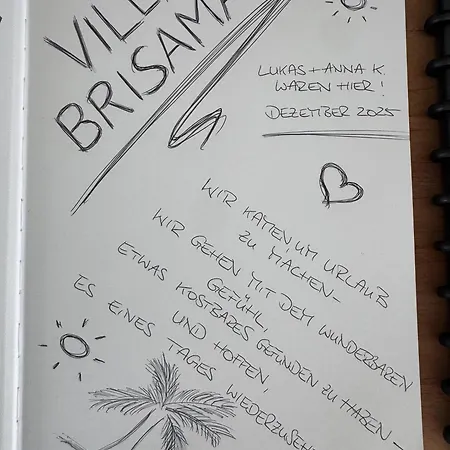 VILLA
BRISAMAR
LUKAS + ANNA K.
WAREN HIER!
DEZEMBER 2025
WIR KAMEN UM URLAUB
ZU MACHEN–
WIR GEHEN MIT DEM WUNDERBAREN
GEFÜHL,
ETWAS KOSTBARES GEFUNDEN ZU HABEN–
UND HOFFEN,
ES EINES TAGES WIEDERZUSEH